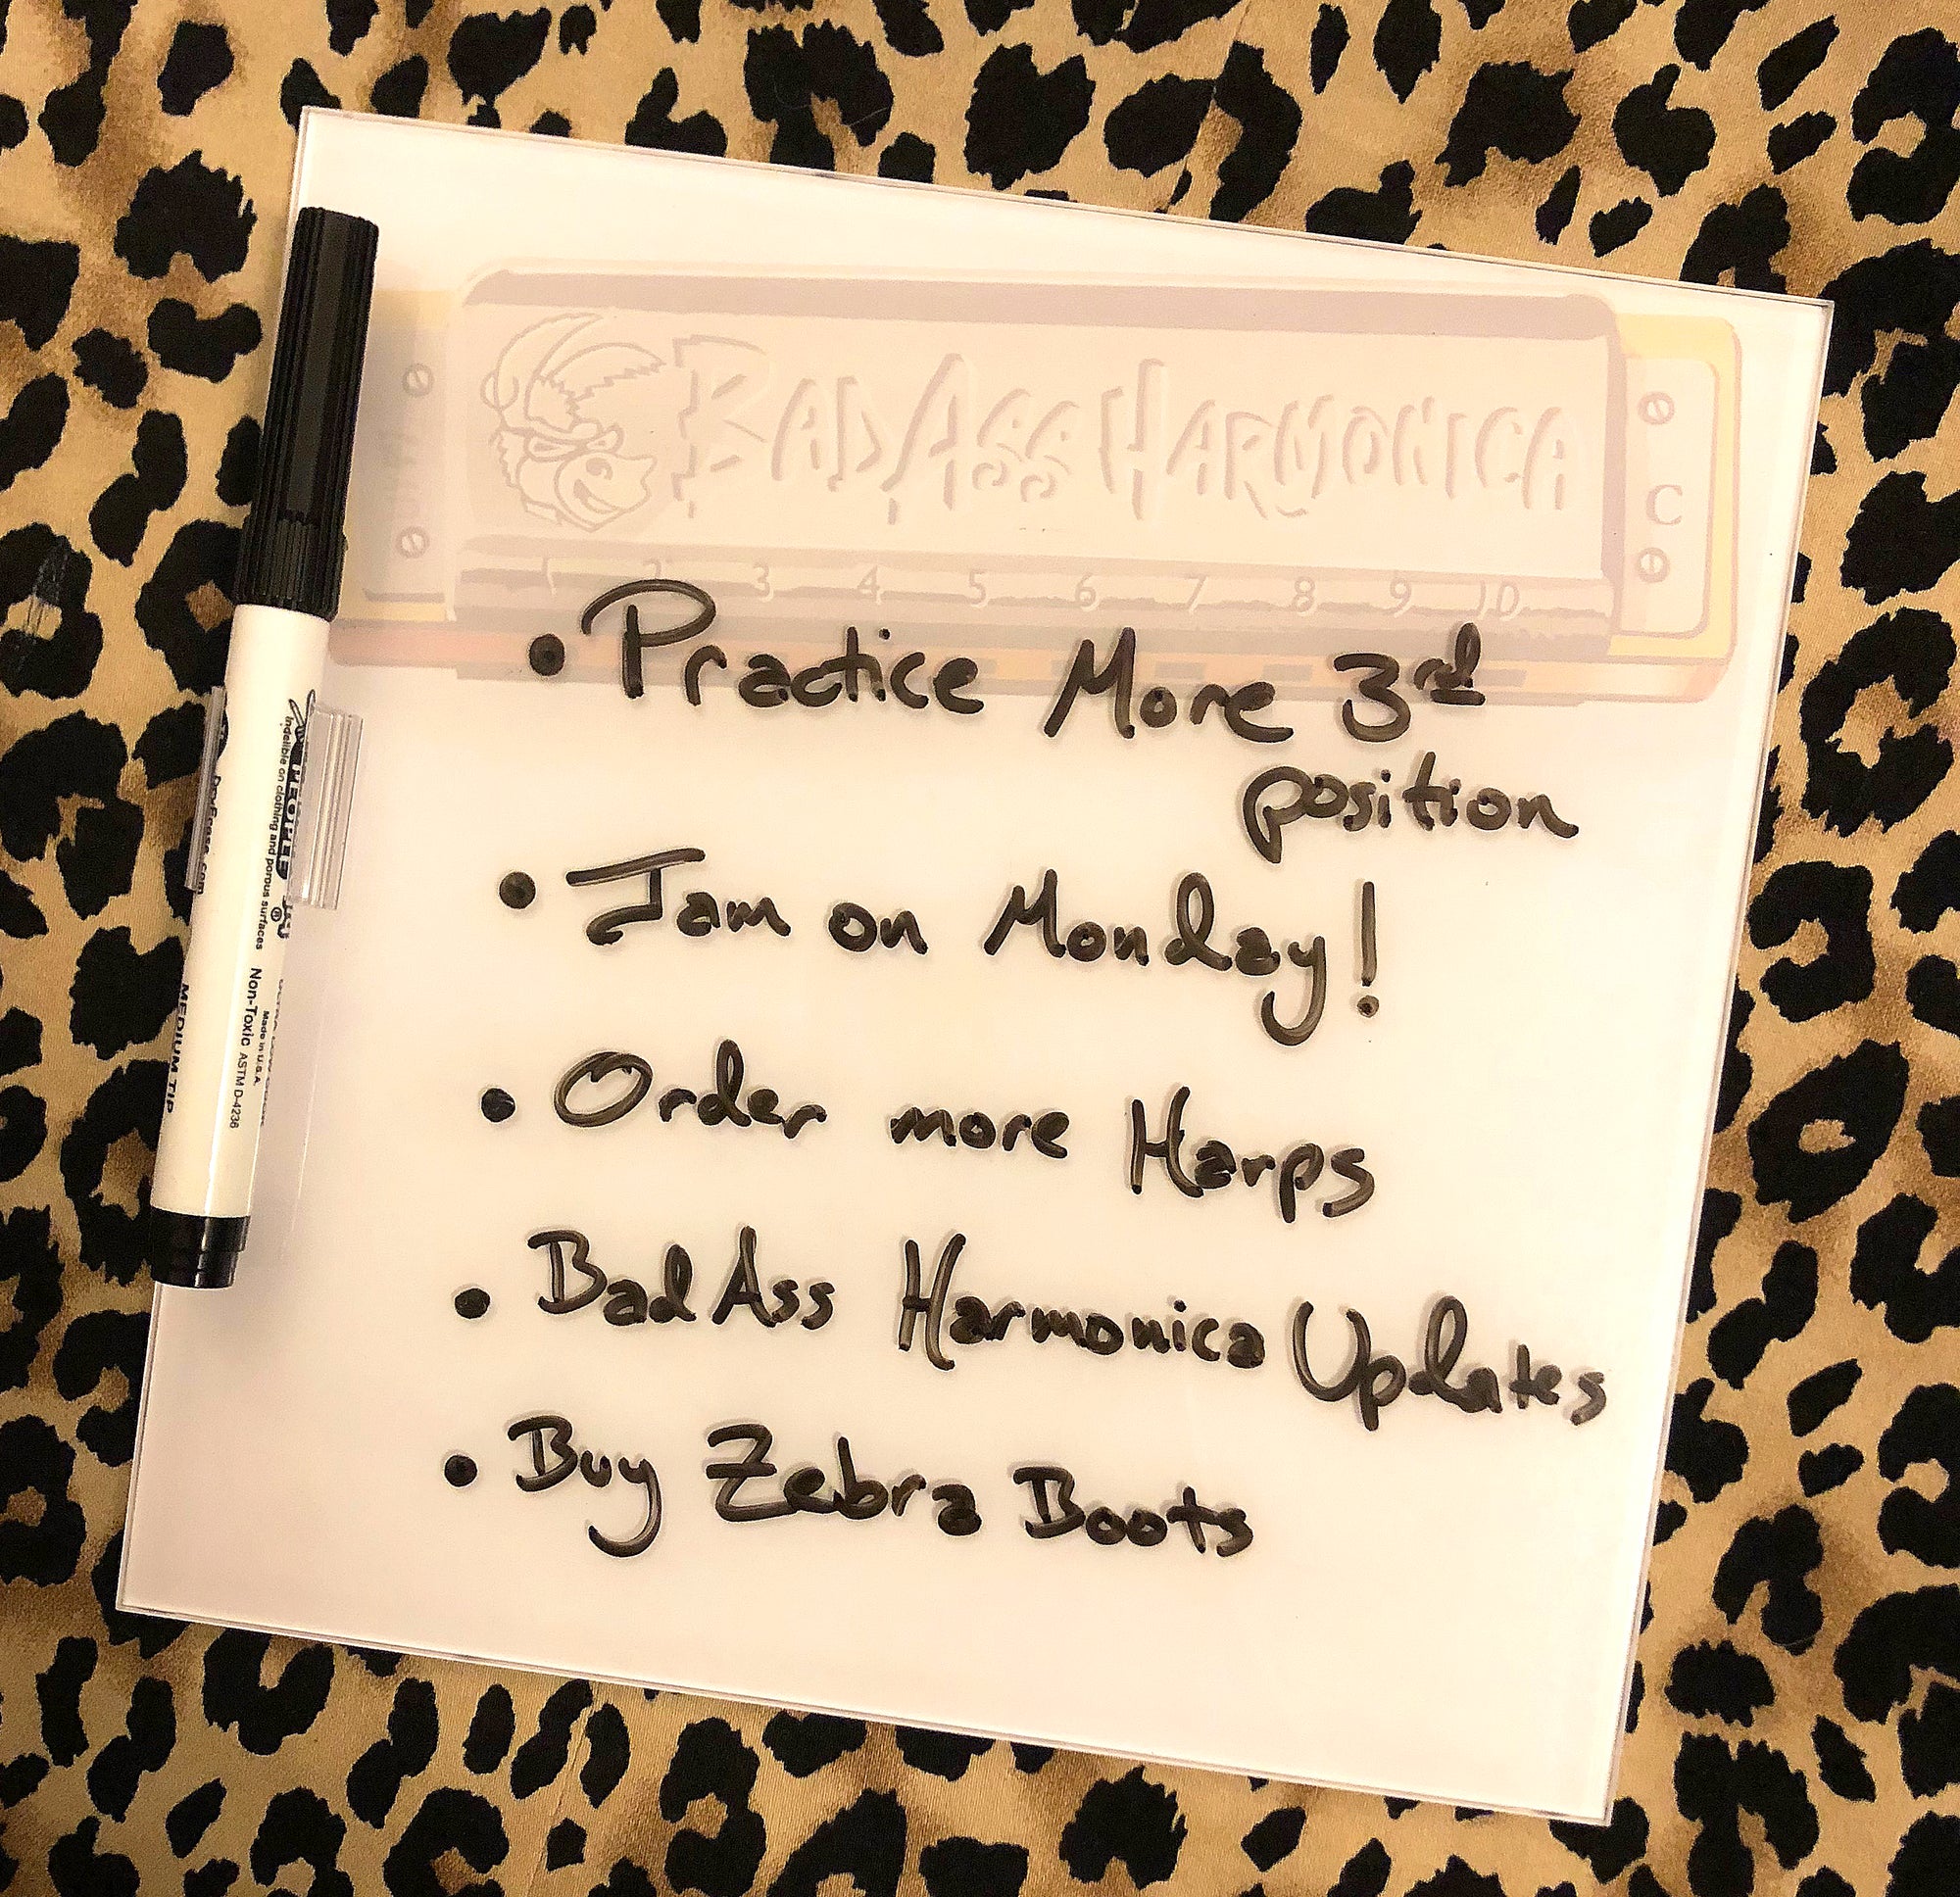 BAD ASS HARMONICA
C
1 2 3 4 5 6 7 8 9 10
• Practice More 3rd
position
• Jam on Monday!
• Order more Harps
• Bad Ass Harmonica Updates
• Buy Zebra Boots
indelible on clothing and porous surfaces
Non-Toxic ASTM D-4236
Made in U.S.A.
MEDIUM TIP